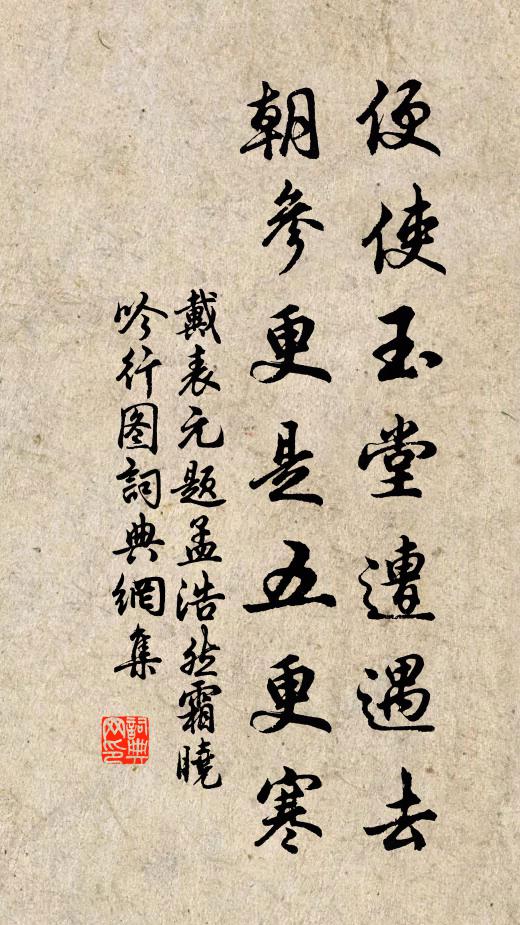 便使玉堂遭遇去
朝參更是五更寒
戴表元题孟浩然霜曉
吟行图詞典網集
詞典网印